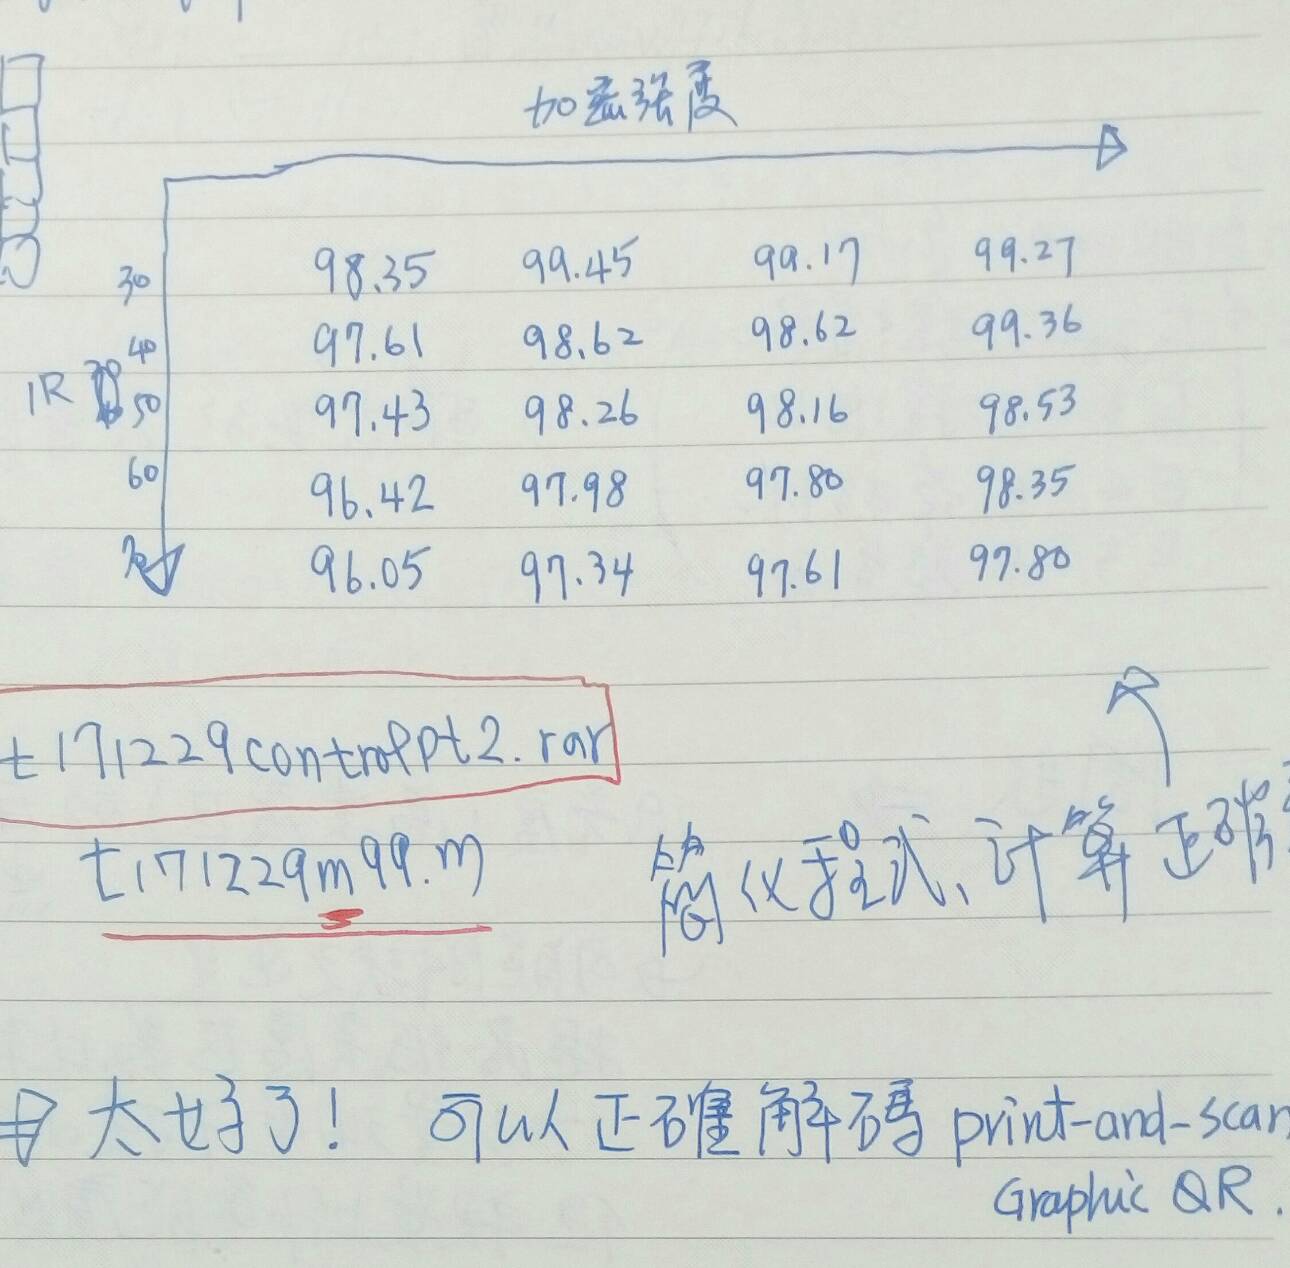 加亟强度
30 98.35 99.45 99.17 99.27
40 97.61 98.62 98.62 99.36
IR 50 97.43 98.26 98.16 98.53
60 96.42 97.98 97.80 98.35
70 96.05 97.34 97.61 97.80
t171229controlpt2.rar
t171229m99.m
簡仪程式、計算正確
太好了! 可以正確解碼 print-and-scan
Graphic QR.